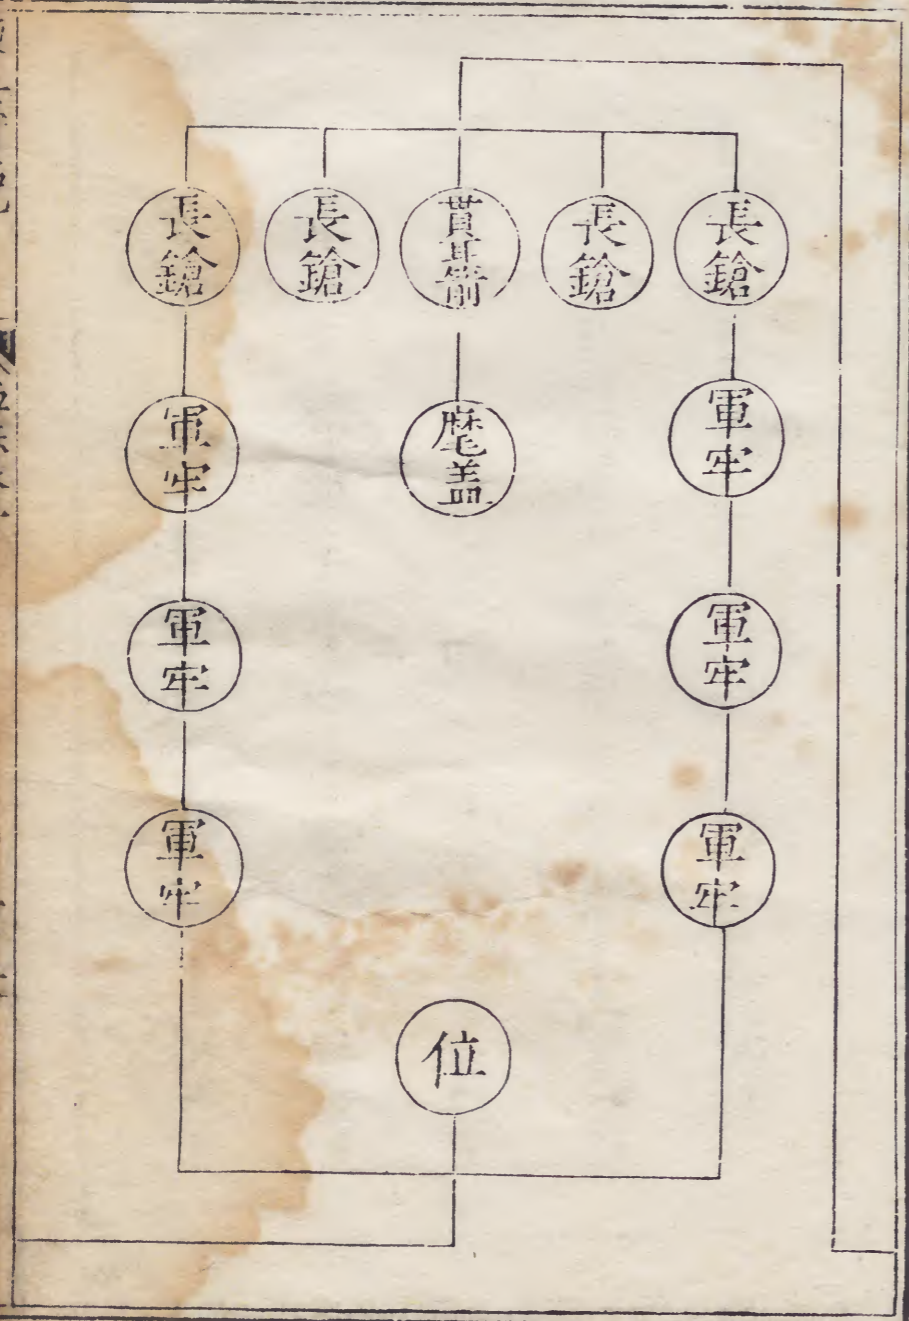 長鎗
長鎗
貫耳箭
長鎗
長鎗
軍牢
麾盖
軍牢
軍牢
軍牢
軍牢
軍牢
位